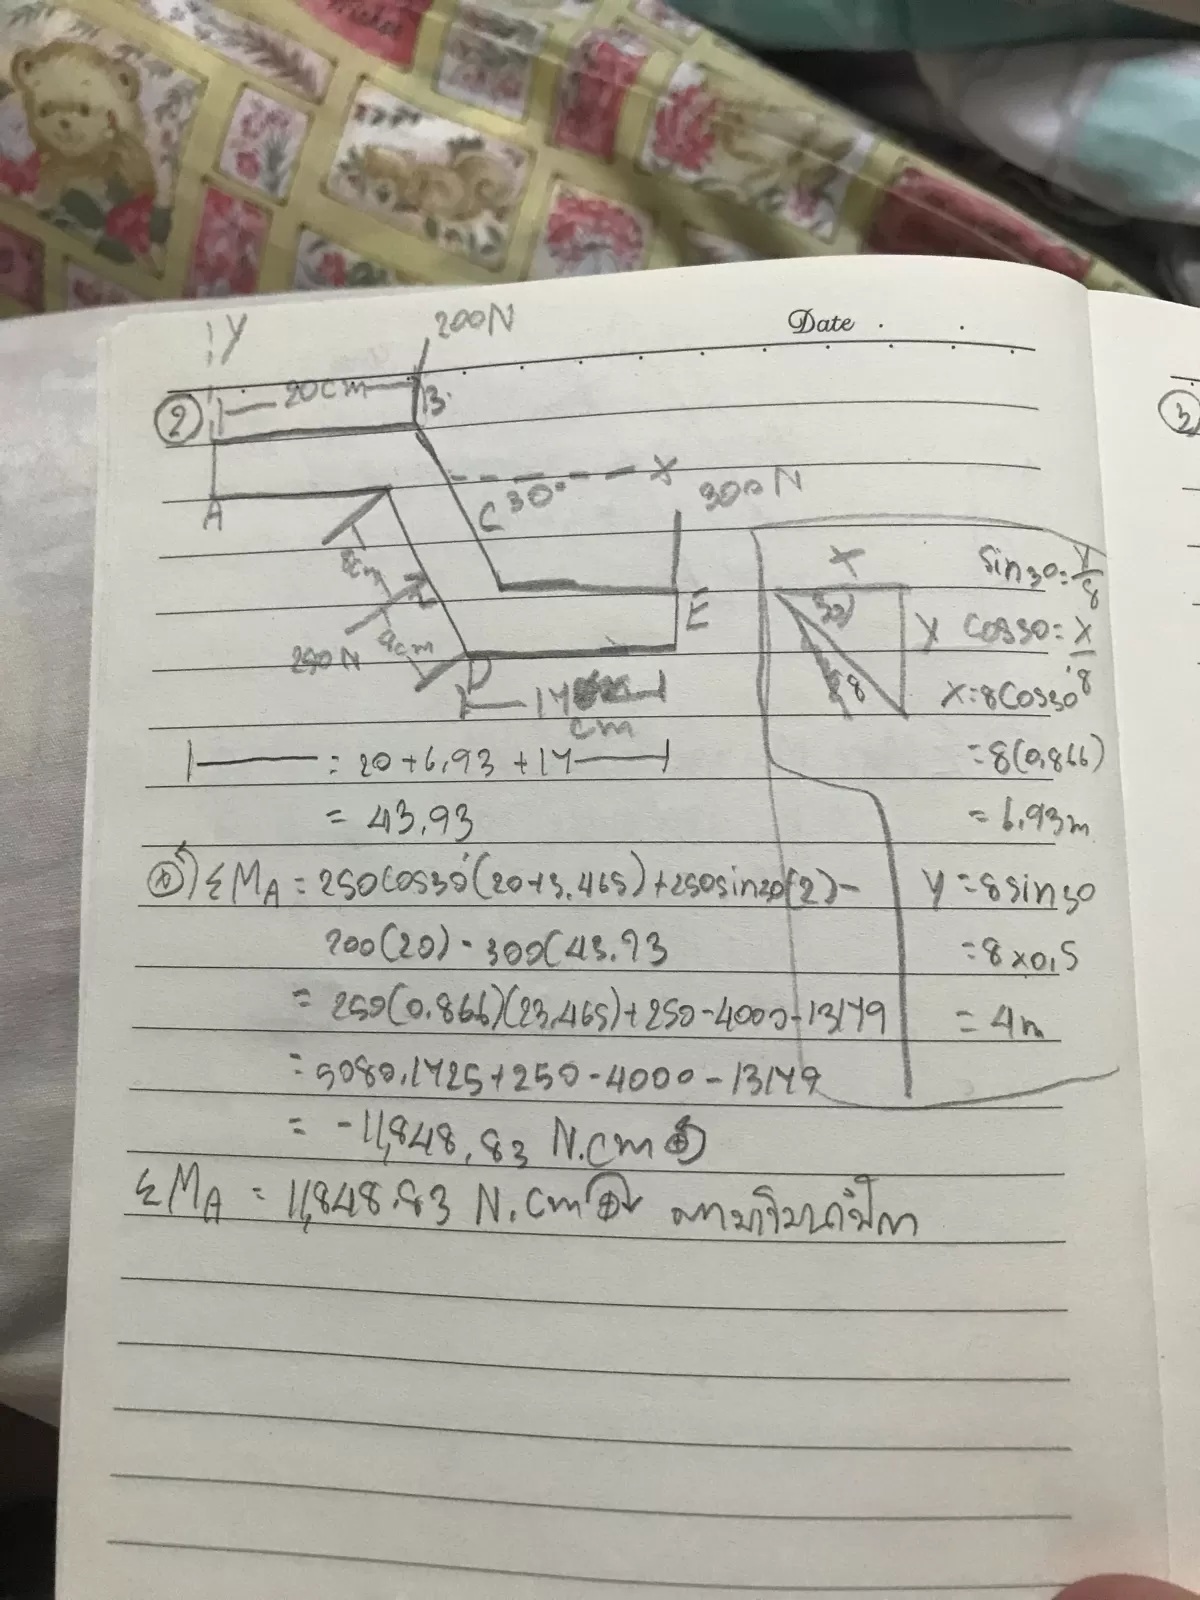 Date
Y
200N
20cm
② B
A
C 30° X
300N
8cm
E
250N
8cm
D
17
cm
= 20+6.93+17
= 43.93
ΣMA = 250cos30°(20+3.465)+250sin30(2)-
200(20)-300(43.93
= 250(0.866)(23.465)+250-4000-13179
= 5080.1725+250-4000-13179
= -11,848.83 N.cm
ΣMA = 11,848.83 N.cm ตามเข็มนาฬิกา
X
30
Y
8
Sin30=Y/8
Cos30=X/8
X=8Cos30°
=8(0.866)
=6.93m
Y=8sin30
=8×0.5
=4m
3